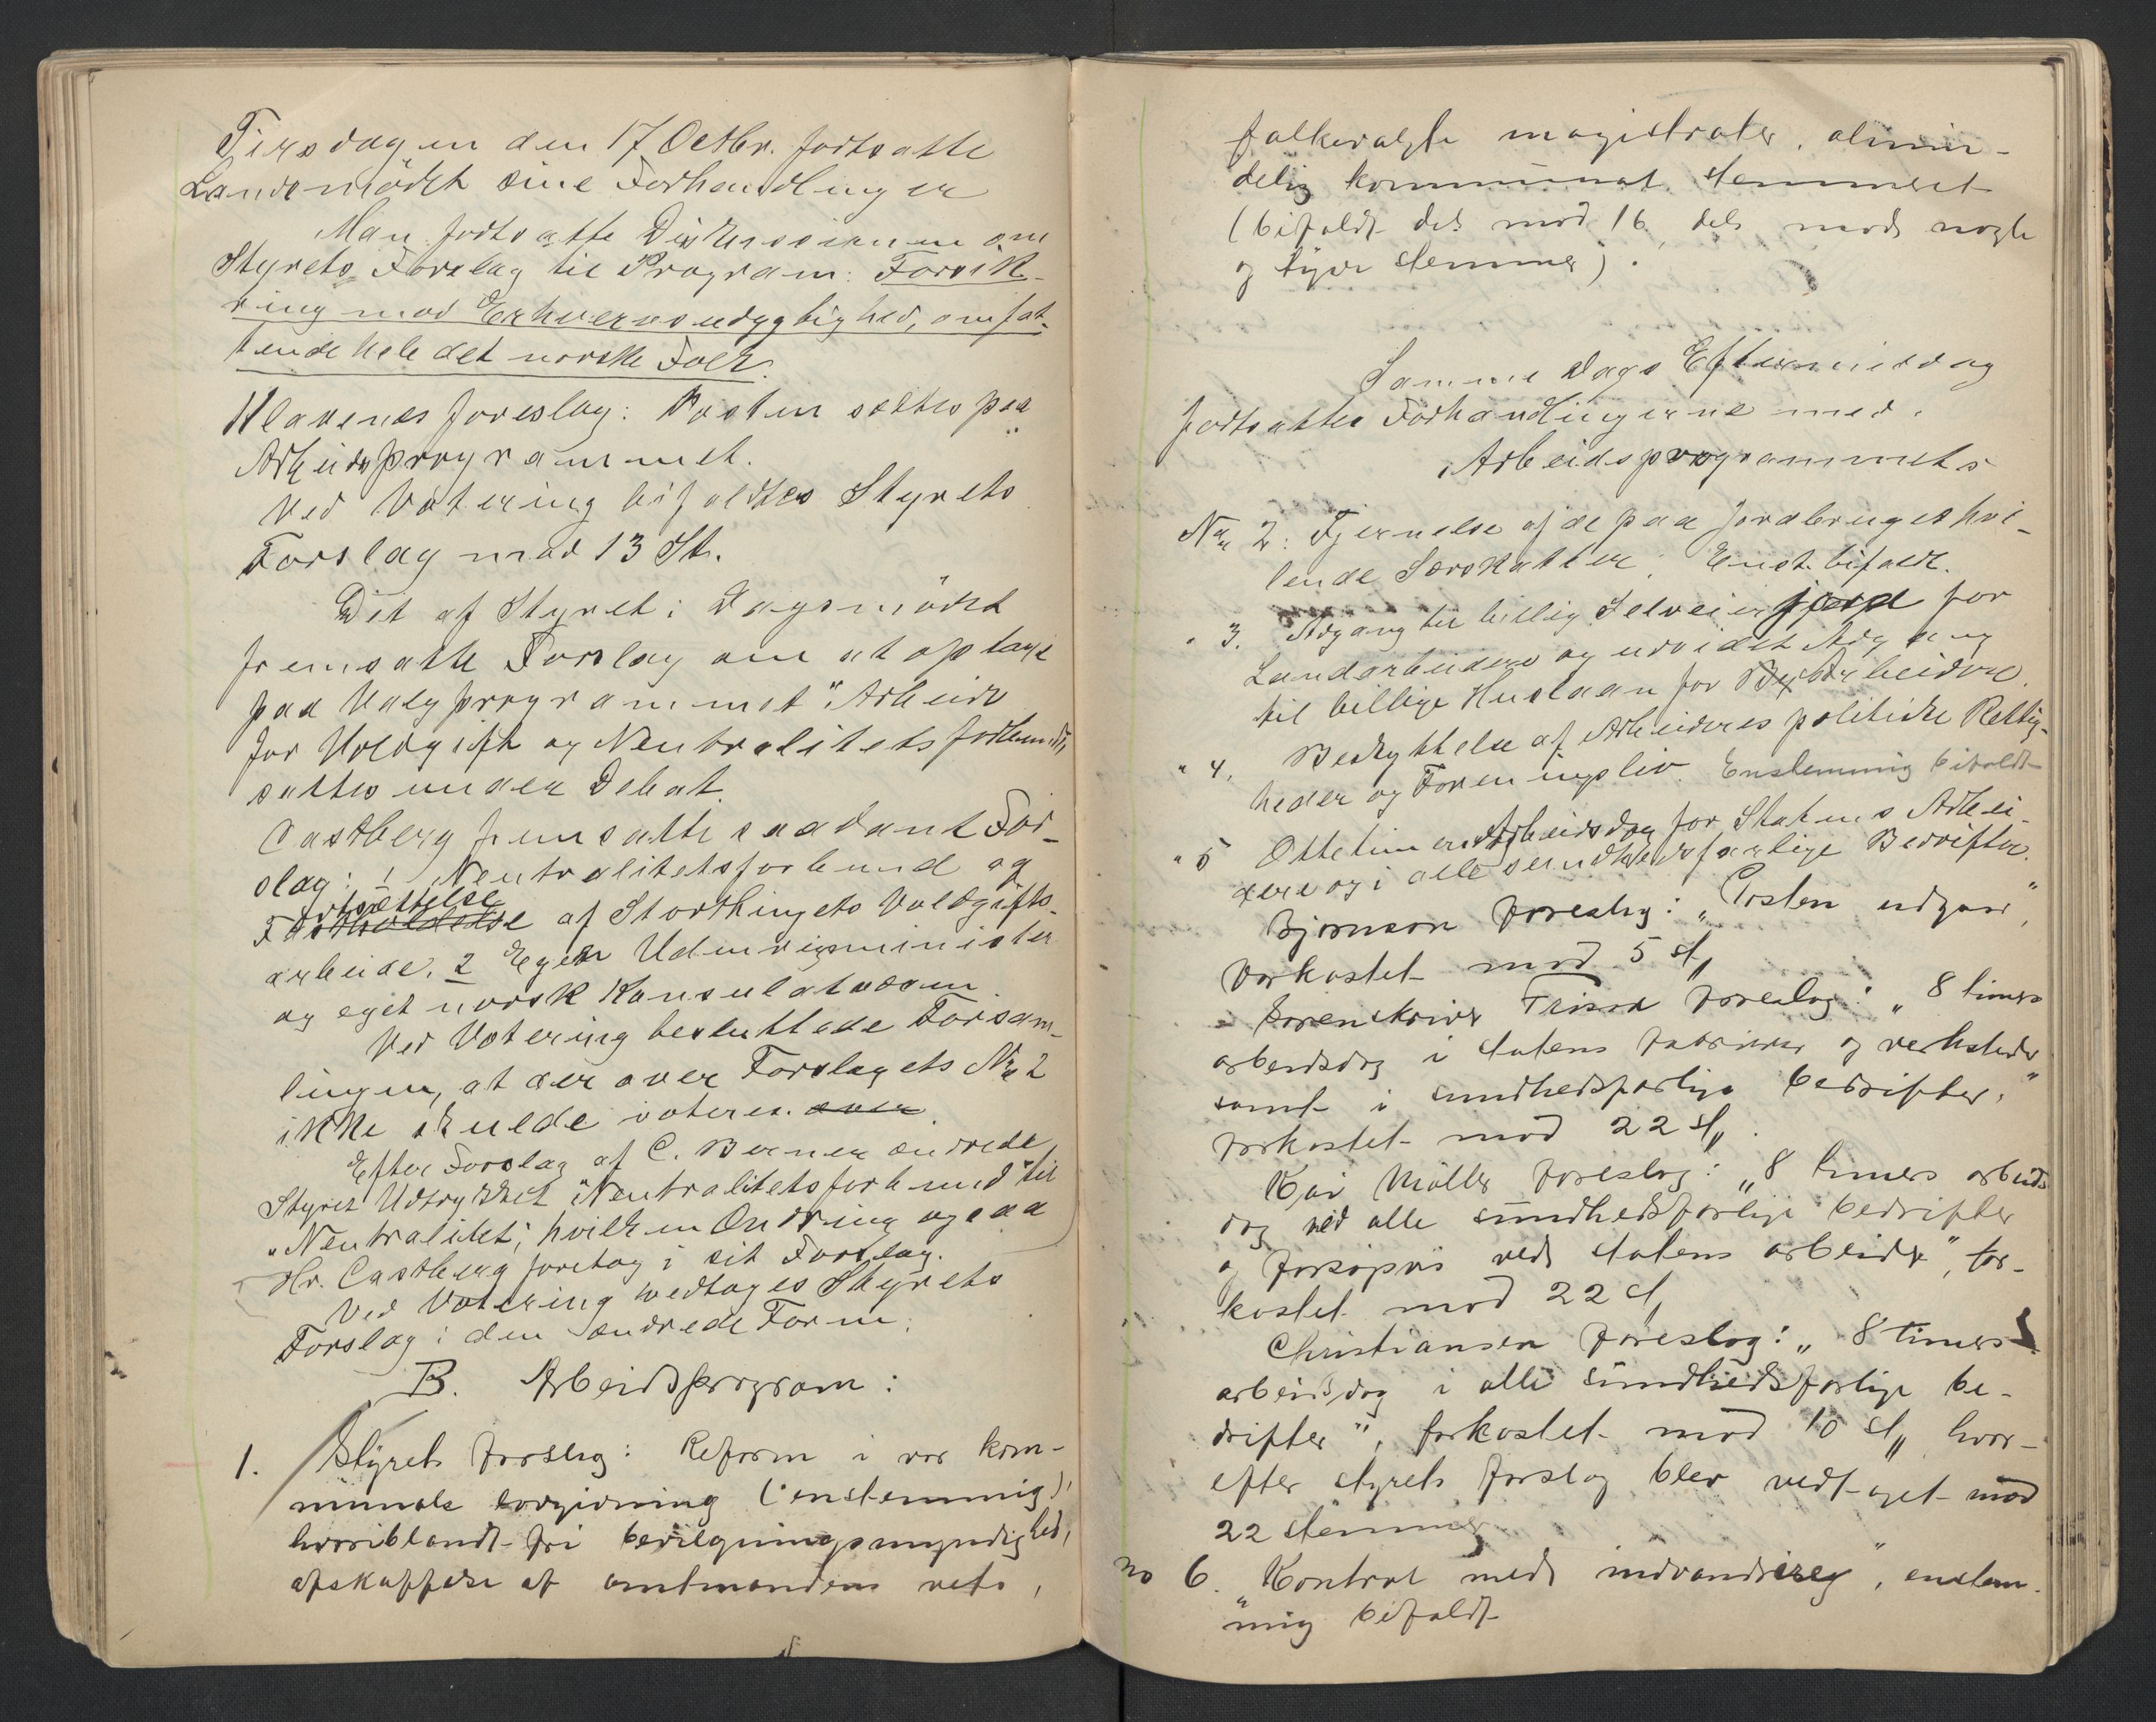 Tirsdagen den 17 Octbr. fortsatte
Landsmödet sine Forhandlinger
Man fortsatte Diskussionen om
Styrets Forslag til Program: Forsik-
ring mod Erhvervsudygtighed, omfat-
tende hele det norske Folk.
Klavenes foreslog: Posten sættes paa
Arbeidsprogrammet.
Ved Votering bifaldtes Styrets
Forslag mod 13 St.
Det af Styret i Dagsmödet
fremsatte Forslag om at optage
paa Valgprogrammet "Arbeide
for Voldgift og Neutralitetsforbund",
sattes under Debat.
Castberg fremsatte saadant For-
slag: 1 Neutralitetsforbund og
Fortsættelse
Fastholdelse af Storthingets Voldgifts-
arbeide. 2 Egen Udenrigsminister
og eget norsk Konsulatvæsen.
Ved Votering besluttede Forsam-
lingen, at der over Forslagets No 2
ikke skulde voteres over
Efter Forslag af C. Berner ændrede
Styret Udtrykket "Neutralitetsforbund" til
"Neutralitet", hvilken Ændring ogsaa
Hr. Castberg foretog i sit Forslag.
Ved Votering vedtoges Styrets
Forslag i den ændrede Form.
B. Arbeidsprogram:
1. Styrets forslag: Reform i vor kom-
munale lovgivning (enstemmig),
hvoriblandt fri bevilgningsmyndighed,
afskaffelse af amtmandens veto,
folkevalgte magistrater, almin-
delig kommunal stemmeret
(bifaldt dels mod 16, dels mod nogle
og tyve stemmer).
Samme Dags Eftermiddag
fortsattes Forhandlingerne med
Arbeidsprogrammets
No 2: Fjernelse af de paa Jordbruget hvi-
lende Særskatter. Enst. bifaldt.
" 3. Adgang til billig Selveierjord for
Landarbeidere og udvidet Adgang
til billige Huslaan for Byarbeidere.
" 4. Beskyttelse af Arbeideres politiske Rettig-
heder og Foreningsliv. Enstemmig bifaldt
" 5 Ottetimers Arbeidsdag for Statens Arbei-
dere og i alle sundhedsfarlige Bedrifter.
Bjørnson foreslog: "Posten udgaar",
forkastet mod 5 st,,
Sorenskriver foreslog: "8 timers
arbeidsdag i statens fabriker og verksteder
samt i sundhedsfarlige bedrifter."
forkastet mod 22 st,,.
Kai Møller foreslog: "8 timers arbeids-
dag ved alle sundhedsfarlige bedrifter
og forsøgsvis ved statens arbeider", for-
kastet mod 22 st,
Christiansen foreslog: "8 timers
arbeidsdag i alle sundhedsfarlige be-
drifter", forkastet mod 10 st,, hvor-
efter styrets forslag blev vedtaget mod
22 stemmer
no 6. "Kontrol med indvandring", enstem-
mig bifaldt